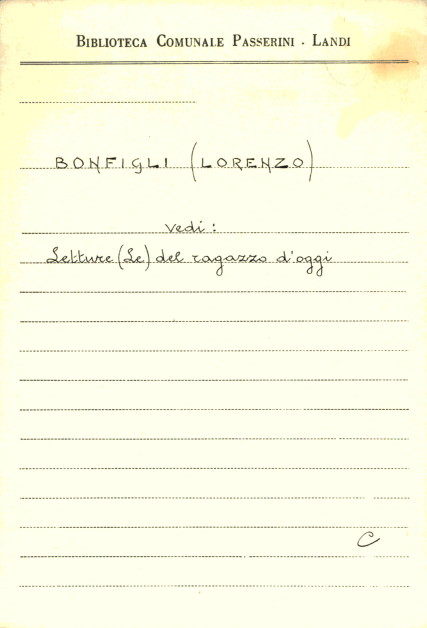 BIBLIOTECA COMUNALE PASSERINI - LANDI
BONFIGLI (LORENZO)
vedi:
Letture (Le) del ragazzo d'oggi
C